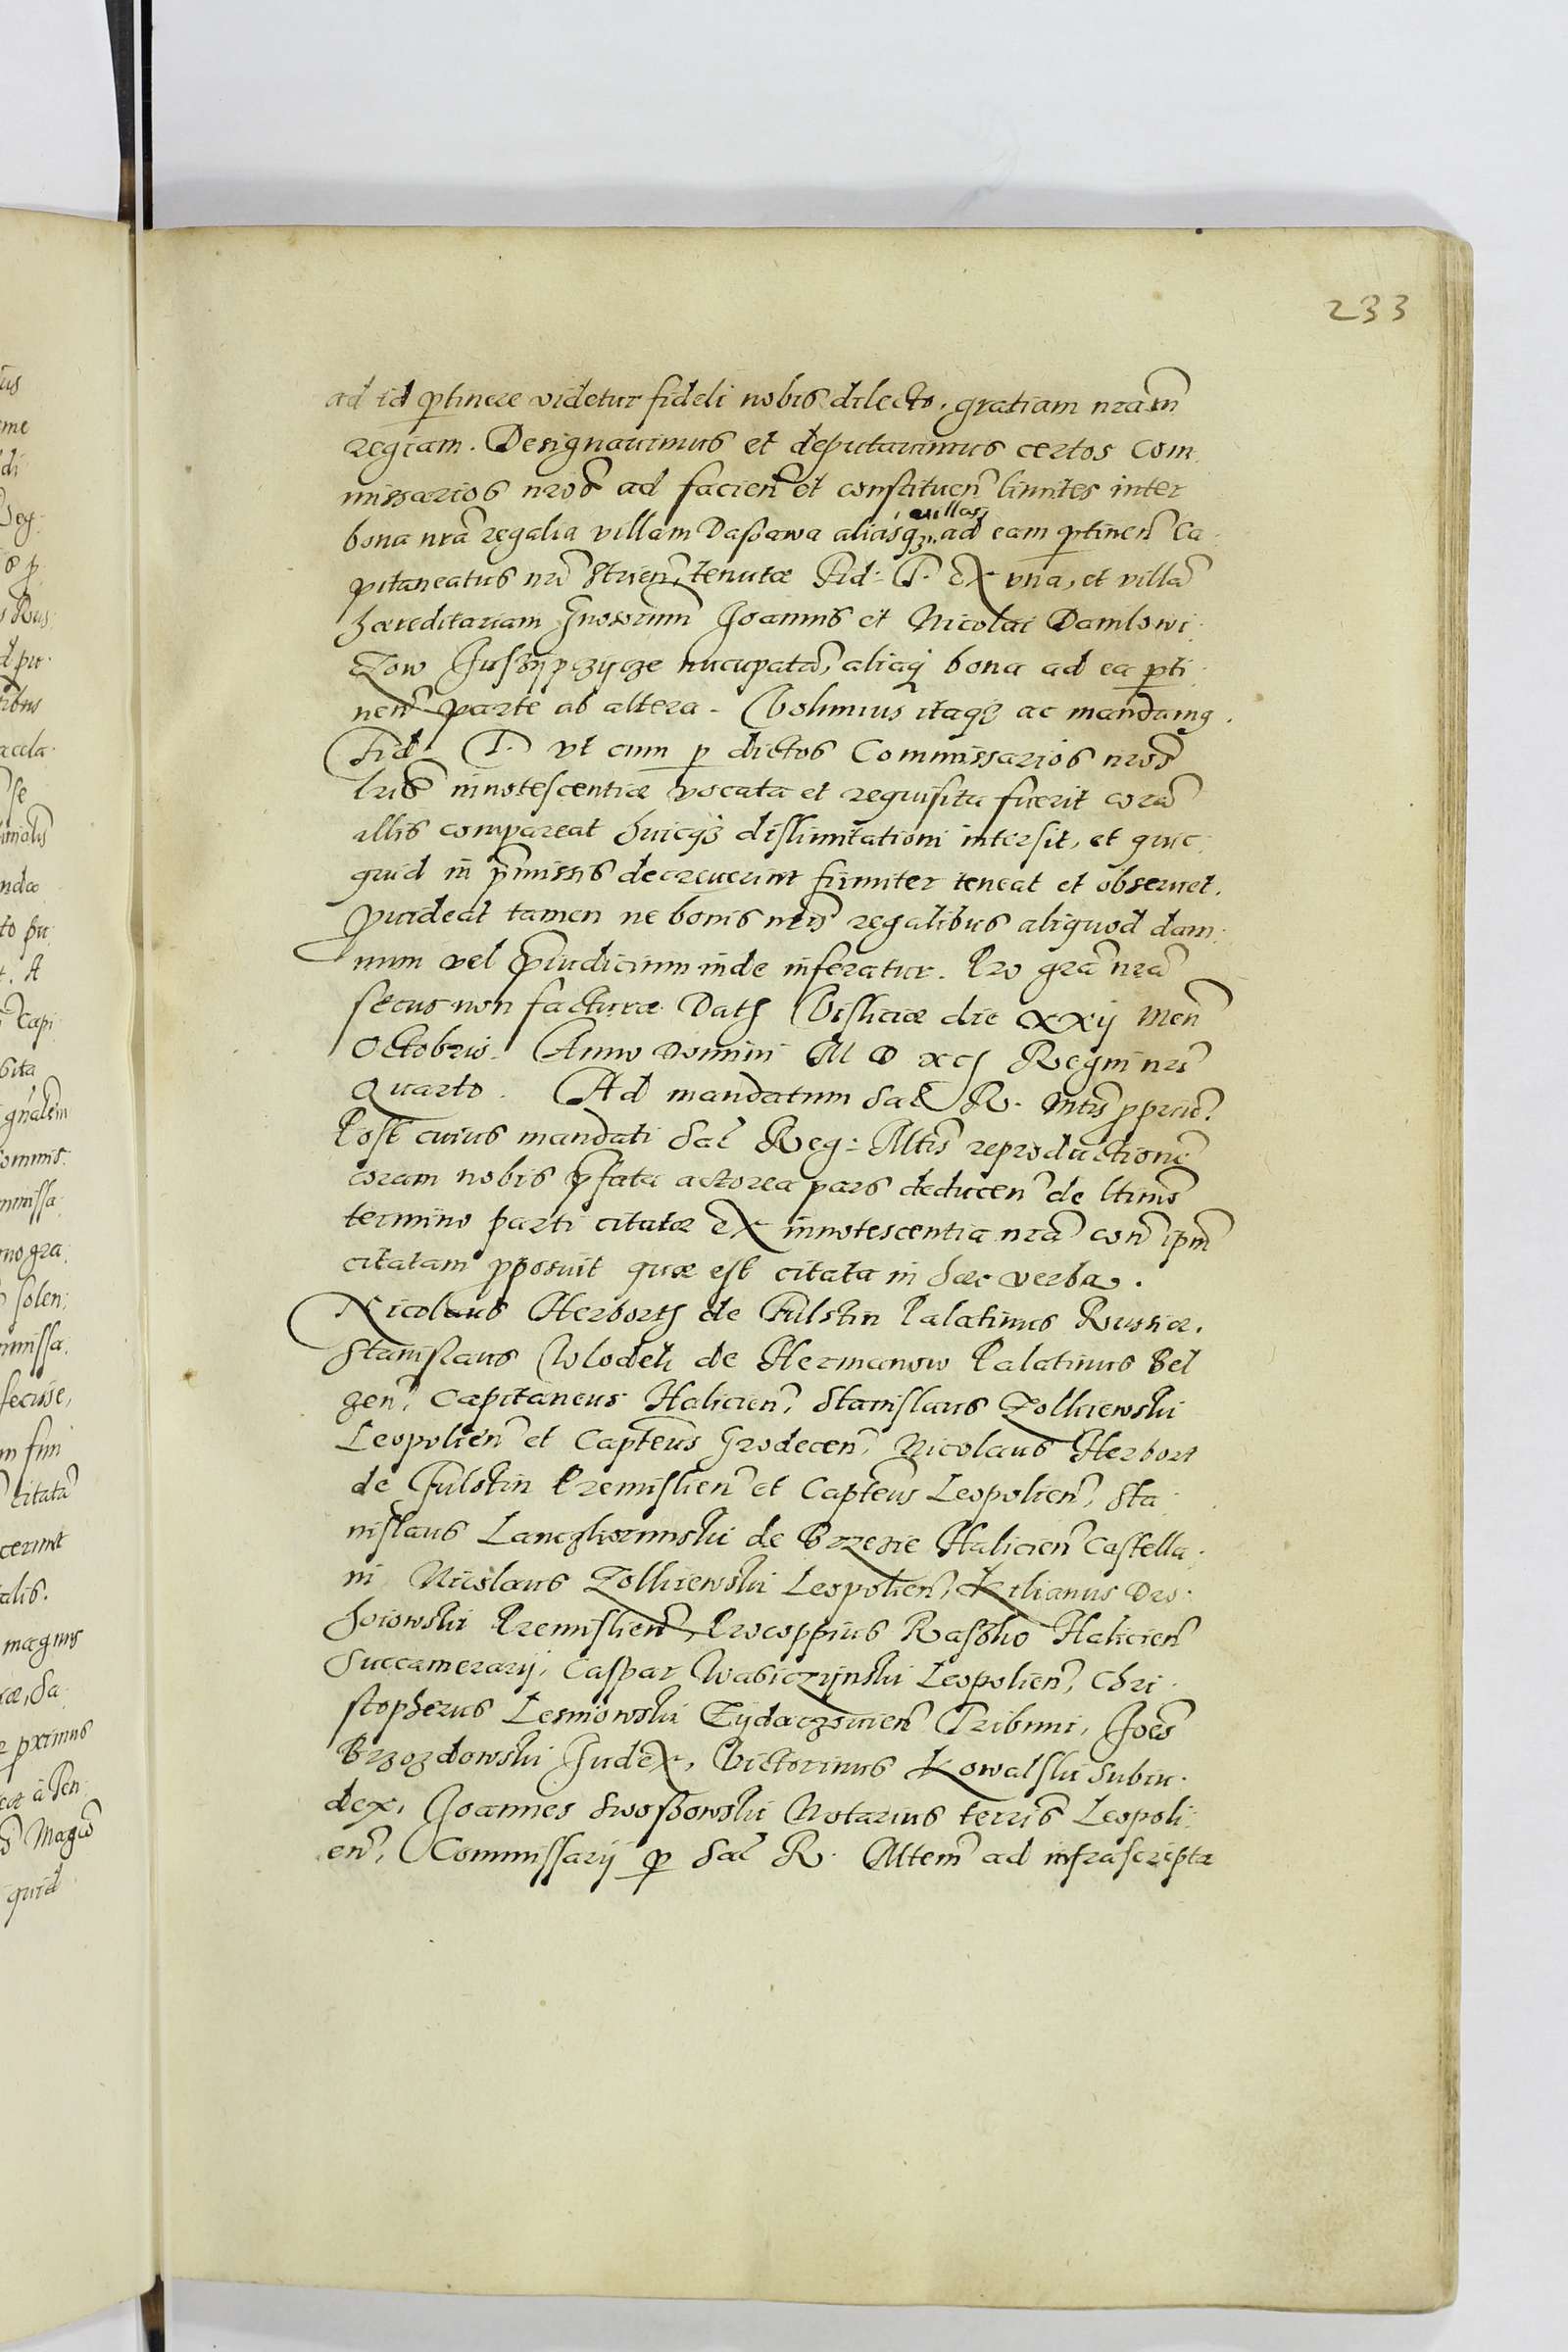 233
ad id ptinere videtur fideli nobis dilecto, gratiam nram
regiam. Designavimus et deputavimus certos Com
missarios nros ad facien et constituen limites inter
villas
bona nra regalia villam Daßawa aliasq3 ad eam ptinen Ca
pitaneatus nri Strien, tenutæ Fid: T. ex vna, et villa
hæreditariam Gnosorum Joannis et Nicolai Danilowi
Zow nucupata, aliaq bona ad ea pti
nen parte ab altera. Volumus itaq3 ac mandamus
Fid. T. vt cum p dictos Commissarios nros
lris innotescentiæ vocata et requisita fuerit cora
illis compareat huicq3 dislimitationi intersit, et quic
quid in pmissis decreverint firmiter teneat et observet.
Pvideat tamen ne bonis nris regalibus aliquod dam
num vel piudicium inde inferatur. Pro gra nra
secus non facturæ. Dat Visliciæ die xxij Men
Octobris. Anno Domini M D xcj Regni nri
Quarto. Ad mandatum Sac R. Mtis ppriu.
Post cuius mandati Sac Reg: Mtis reproductione
coram nobis pfata actorea pars deducen de ltimo
termino parti citatæ ex innotescentia nra con ipm
citatam pposuit quæ est citata in hæc verba.
Nicolaus Herbort de Fulstin Palatinus Russiæ.
Stanislaus Wlodek de Hermanow Palatinus Bel
zen, Capitaneus Halicien, Stanislaus Zolkiewski
Leopolien et Capteus Grodecen, Nicolaus Herbort
de Fulstin Premislien et Capteus Leopolien, Sta
nislaus Lanczkorunski de Brzezie Halicien Castella
ni Nicolaus Zolkiewski Leopolien, Kilianus Dro
hoiowski Premislien, Procoppius Raßko Halicien
Succamerarij, Caspar Wabiczijnski Leopolien, Chri
stopherus Lesniowski Zijdaczowien Tribuni, Joes
Brzozdowski Judex, Victorinus Kowalski Subiu
dex, Joannes Swoßowski Notarius terris Leopoli
en, Commissarij p Sac R. Mtem ad infrascripta